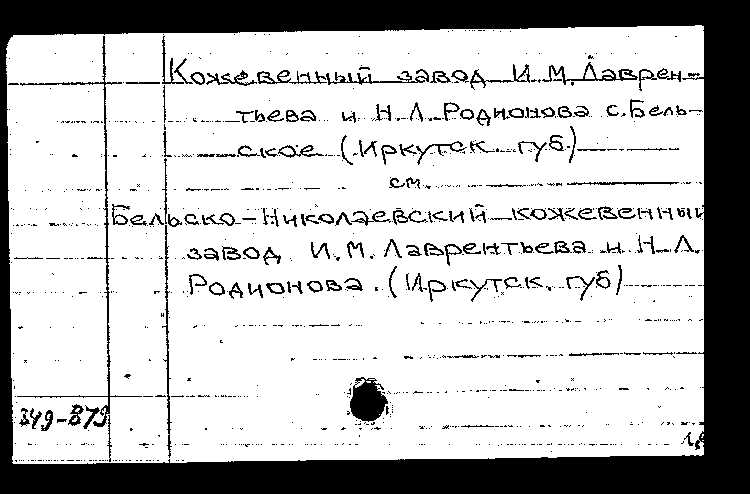 Кожевенный завод И.М. Лаврен-
тьева и Н.Л. Родионова с. Бель-
ское (Иркутск. губ)
см.
Бельско-Николаевский кожевенный
завод И.М. Лаврентьева и Н.Л.
Родионова. (Иркутск. губ)
349-879